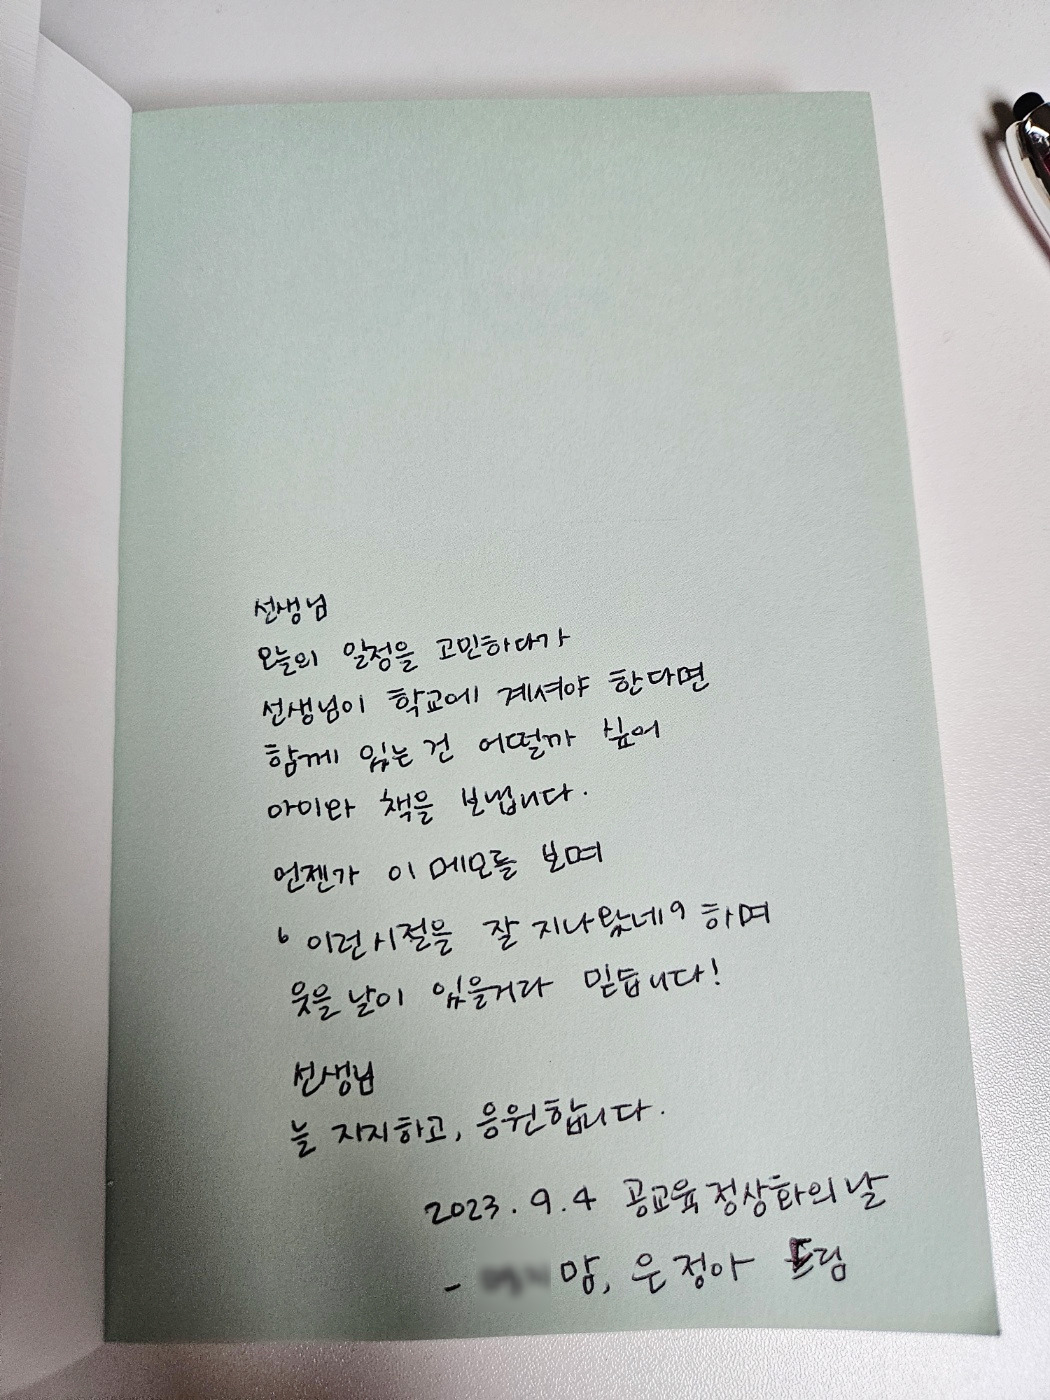 선생님
오늘의 일정을 고민하다가
선생님이 학교에 계셔야 한다면
함께 있는 건 어떨까 싶어
아이와 책을 보냅니다.
언젠가 이 메모를 보며
'이런 시절을 잘 지나왔네' 하며
웃을 날이 있을거라 믿습니다!
선생님
늘 지지하고, 응원합니다.
2023. 9. 4 공교육 정상화의 날
- 맘, 윤정아 드림